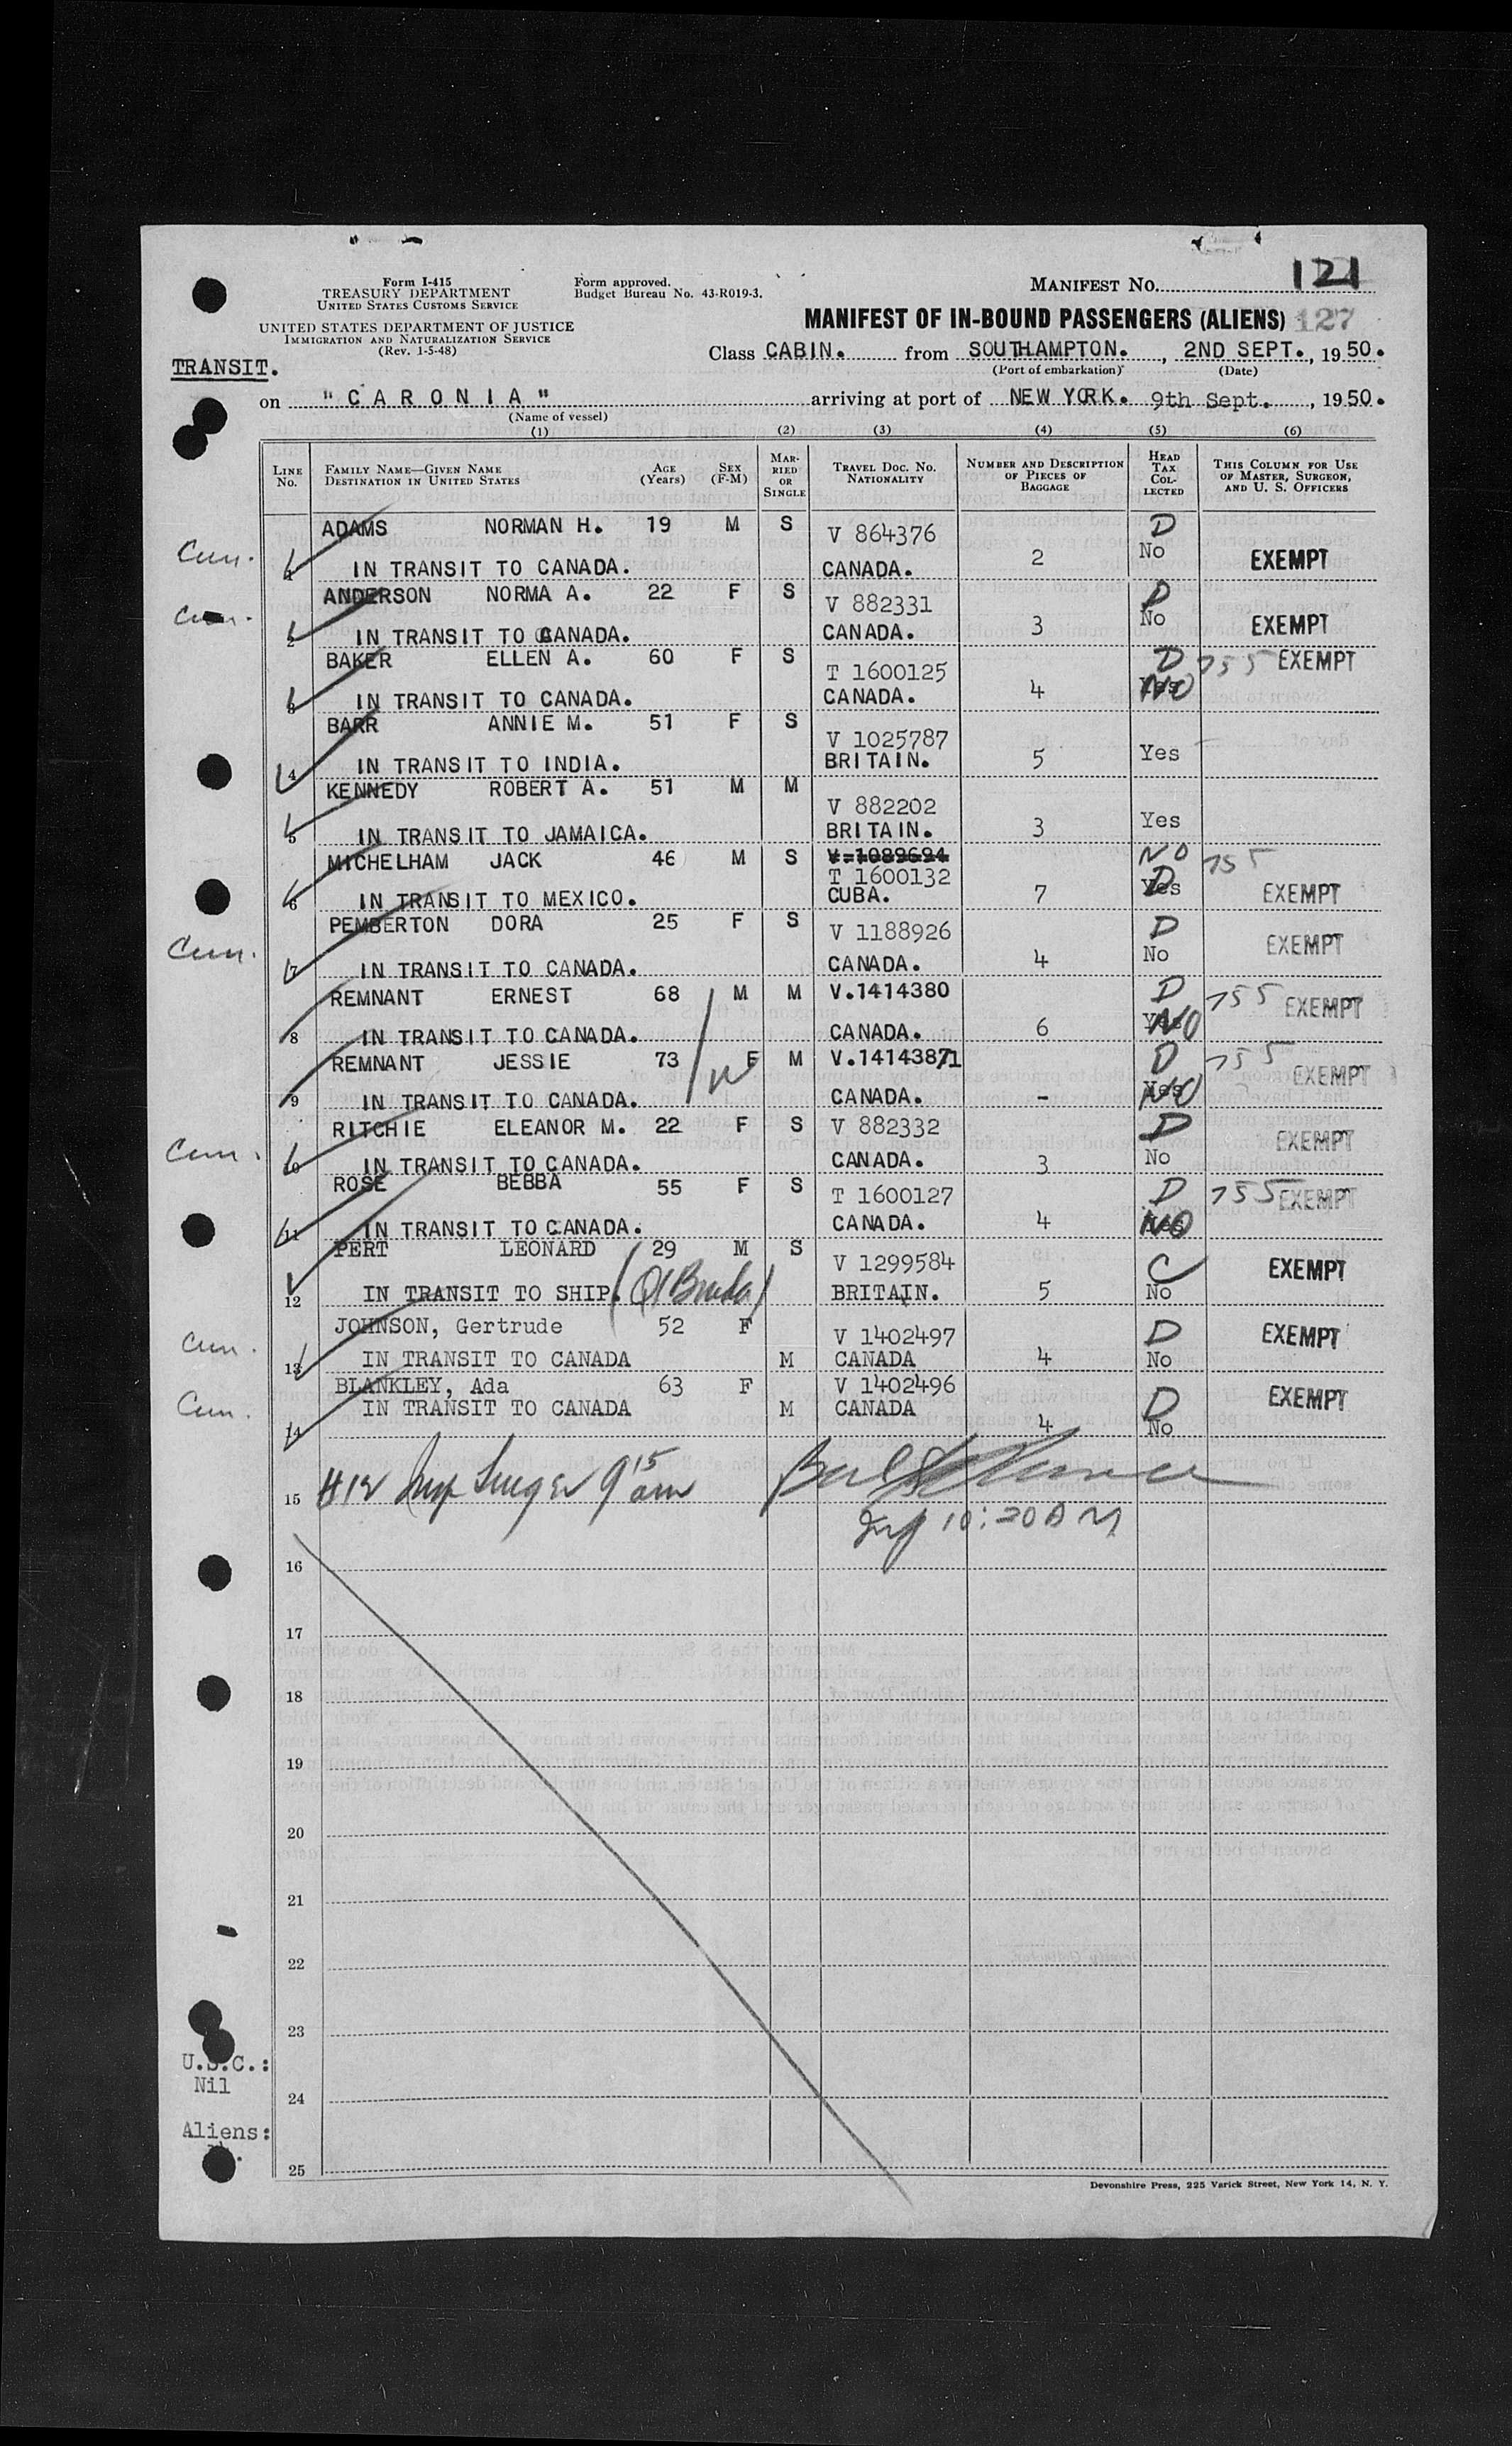 MANIFEST NO. 121
Form I-415
TREASURY DEPARTMENT
UNITED STATES CUSTOMS SERVICE
Form approved.
Budget Bureau No. 43-R019-3.
UNITED STATES DEPARTMENT OF JUSTICE
IMMIGRATION AND NATURALIZATION SERVICE
(Rev. 1-5-48)
MANIFEST OF IN-BOUND PASSENGERS (ALIENS) 127
TRANSIT.
Class CABIN. from SOUTHAMPTON. , 2ND SEPT. , 1950.
(Port of embarkation) (Date)
on " C A R O N I A " arriving at port of NEW YORK. 9th Sept. , 1950.
(Name of vessel)
(1) (2) (3) (4) (5) (6)
LINE NO. FAMILY NAME—GIVEN NAME DESTINATION IN UNITED STATES AGE (Years) SEX (F-M) MARRIED OR SINGLE TRAVEL DOC. NO. NATIONALITY NUMBER AND DESCRIPTION OF PIECES OF BAGGAGE HEAD TAX COLLECTED THIS COLUMN FOR USE OF MASTER, SURGEON, AND U. S. OFFICERS
ADAMS NORMAN H. 19 M S V 864376 D
Cun. 1 IN TRANSIT TO CANADA. CANADA. 2 No EXEMPT
ANDERSON NORMA A. 22 F S V 882331 D
Cun. 2 IN TRANSIT TO CANADA. CANADA. 3 No EXEMPT
BAKER ELLEN A. 60 F S T 1600125 D 755 EXEMPT
3 IN TRANSIT TO CANADA. CANADA. 4 Yes NO
BARR ANNIE M. 51 F S V 1025787
4 IN TRANSIT TO INDIA. BRITAIN. 5 Yes
KENNEDY ROBERT A. 51 M M V 882202
5 IN TRANSIT TO JAMAICA. BRITAIN. 3 Yes
MICHELHAM JACK 46 M S V=1089694 NO 755
T 1600132 D
6 IN TRANSIT TO MEXICO. CUBA. 7 Yes EXEMPT
PEMBERTON DORA 25 F S V 1188926 D
Cun. 7 IN TRANSIT TO CANADA. CANADA. 4 No EXEMPT
REMNANT ERNEST 68 M M V.1414380 D 755 EXEMPT
8 IN TRANSIT TO CANADA. CANADA. 6 Yes NO
REMNANT JESSIE 73 F M V.14143871 D 755 EXEMPT
9 IN TRANSIT TO CANADA. CANADA. - Yes NO
RITCHIE ELEANOR M. 22 F S V 882332 D EXEMPT
Cun. 10 IN TRANSIT TO CANADA. CANADA. 3 No
ROSE BEBBA 55 F S T 1600127 D 755 EXEMPT
11 IN TRANSIT TO CANADA. CANADA. 4 Yes NO
PERT LEONARD 29 M S V 1299584 C EXEMPT
12 IN TRANSIT TO SHIP. BRITAIN. 5 No
JOHNSON, Gertrude 52 F V 1402497 D EXEMPT
Cun. 13 IN TRANSIT TO CANADA M CANADA 4 No
BLANKLEY, Ada 63 F V 1402496 EXEMPT
Cun. IN TRANSIT TO CANADA M CANADA D
14 4 No
15 #12 Insp 9 15 am
10:20 AM
16
17
18
19
20
21
22
23
U.S.C.:
Nil
24
Aliens:
25
Devonshire Press, 225 Varick Street, New York 14, N. Y.